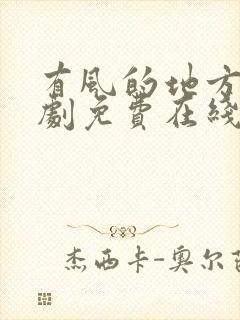 有風的地方
劇免費在綫
杰西卡-奥尔芭